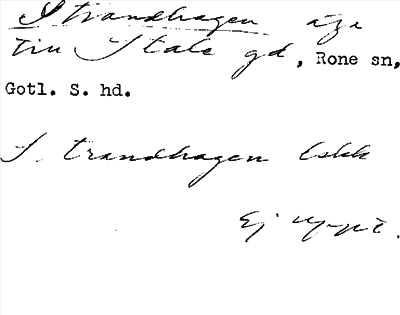 Strandhagen äga
till Stale gd, Rone sn,
Gotl. S. hd.
Strandhagen Eskk
Ej uppt.